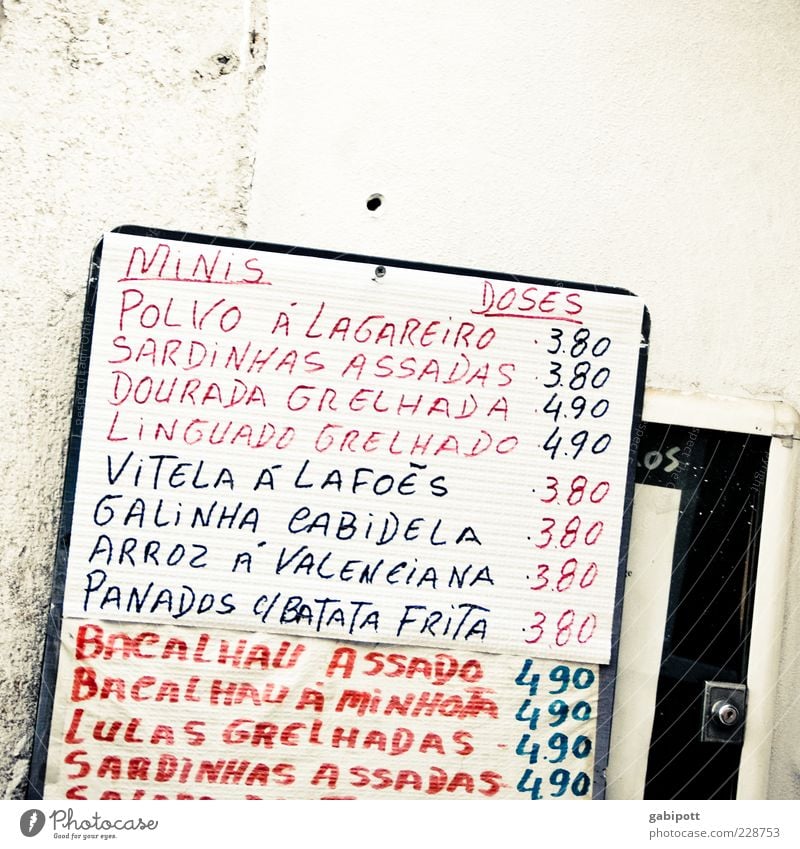 MINIS DOSES
POLVO Á LAGAREIRO 3.80
SARDINHAS ASSADAS 3.80
DOURADA GRELHADA 4.90
LINGUADO GRELHADO 4.90
VITELA Á LAFOẼS 3.80
GALINHA CABIDELA 3.80
ARROZ Á VALENCIANA 3.80
PANADOS C/BATATA FRITA 3.80
BACALHAU ASSADO 4.90
BACALHAU Á MINHOTA 4.90
LULAS GRELHADAS - 4.90
SARDINHAS ASSADAS 4.90
PHOTOCASE
Good for your eyes.
Respect Copyright
gabipott
228753